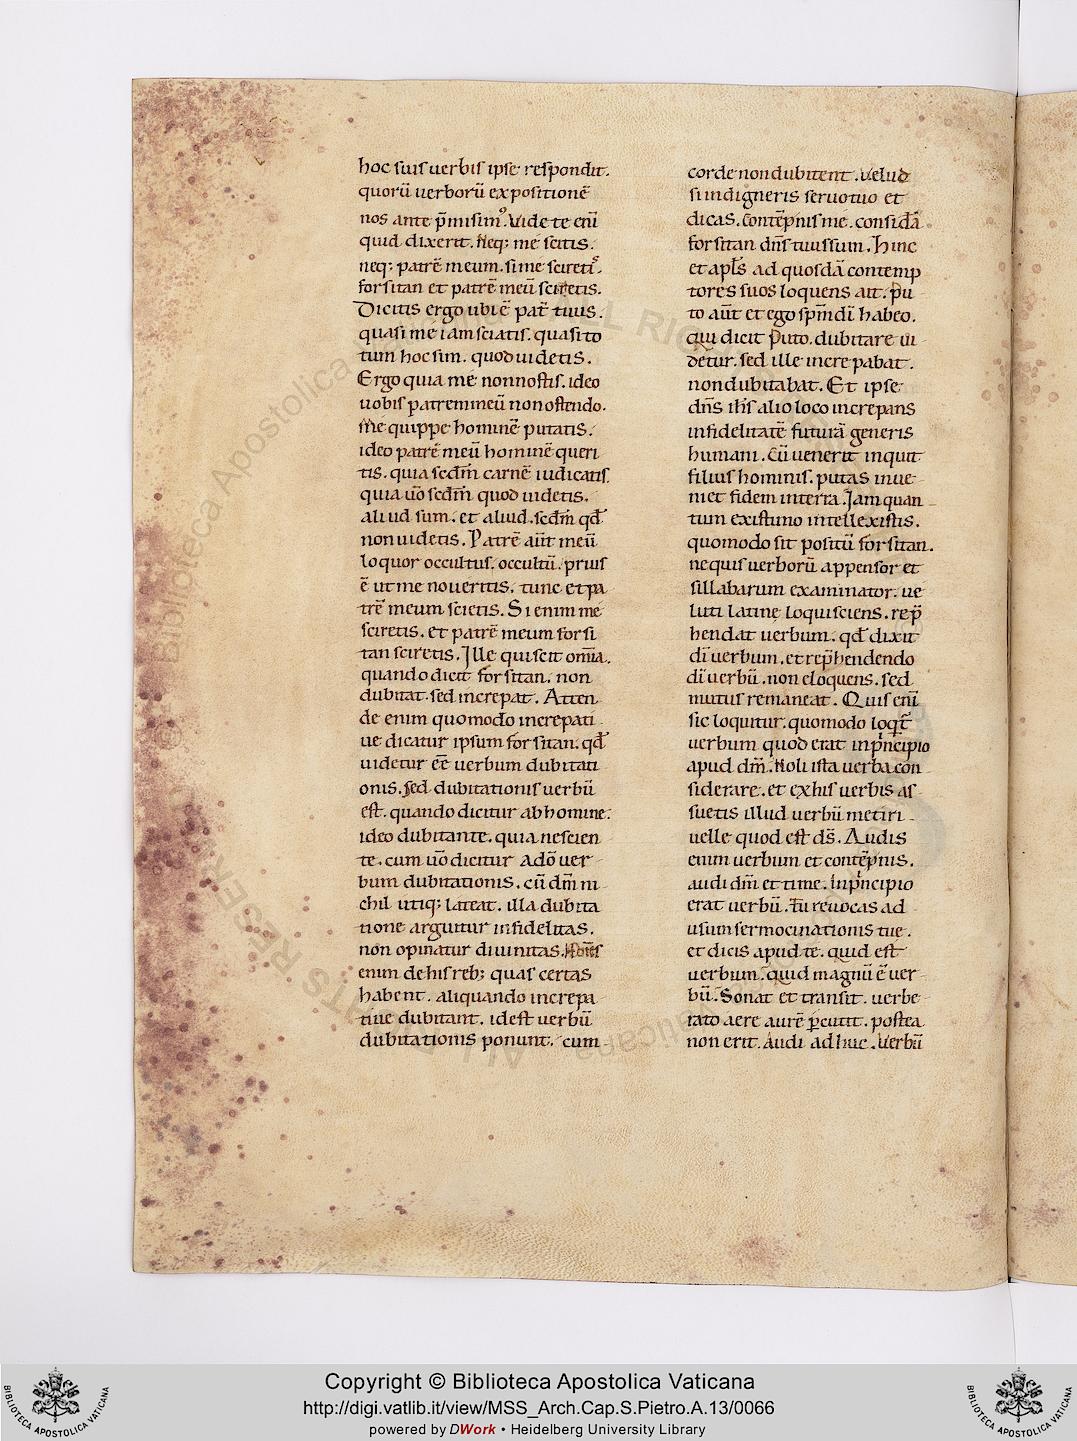 hoc suis uerbis ipse respondit.
quorū uerborū expositionē
nos ante p̄misim᾿. Videte enī
quid dixerit. Neq; me scitis.
neq; patrē meum. si me sciretis.
forsitan et patrē meū sciretis.
Dicitis ergo ubi ē pat̄ tuus.
quasi me iam sciatis. quasi to
tum hoc sim. quod uidetis.
Ergo quia me non nostis. ideo
uobis patrem meū non ostendo.
Me quippe hominē putatis.
ideo patrē meū hominē queri
tis. quia scdm̄ carnē iudicatis.
quia ūo scdm̄ quod uidetis.
aliud sum. et aliud. scdm̄ qd̄
non uidetis. Patrē aūt meū
loquor occultus. occultū. prius
ē ut me noueritis. tunc et pa
trē meum scietis. Si enim me
sciretis. et patrē meum forsi
tan sciretis. Ille qui scit omīa.
quando dicit forsitan. non
dubitat. sed increpat. Atten
de enim quomodo increpati
ue dicatur ipsum forsitan. qd̄
uidetur eē uerbum dubitati
onis. Sed dubitationis uerbū
est. quando dicitur ab homine.
ideo dubitante. quia nescien
te. cum ūo dicitur a dō uer
bum dubitationis. cū dm̄ ni
chil utiq; lateat. illa dubita
tione arguitur infidelitas.
non opinatur diuinitas. Hoīēs
enim de his reb; quas certas
habent. aliquando increpa
tiue dubitant. id est uerbū
dubitationis ponunt. cum
corde non dubitent. Velud
si indigneris seruo tuo et
dicas. Contēpnis me. considā
forsitan dn̄s tuus sum. Hinc
et apl̄s ad quosdā contemp
tores suos loquens ait. Pu
to aūt et ego spm̄ dī habeo.
Qui dicit Puto. dubitare ui
detur. sed ille increpabat.
non dubitabat. Et ipse
dn̄s ih̄s alio loco increpans
infidelitatē futurā generis
humani. Cū uenerit inquit
filius hominis. putas inue
niet fidem in terra. Iam quan
tum existimo intellexistis.
quomodo sit positū forsitan.
ne quis uerborū appensor et
sillabarum examinator. ue
luti latine loqui sciens. rep̄
hendat uerbum. qd̄ dixit
dī uerbum. et rep̄hendendo
dī uerbū. non eloquens. sed
mutus remaneat. Quis enī
sic loquitur. quomodo loqt̄
uerbum quod erat in pͥncipio
apud dm̄. Noli ista uerba con
siderare. et ex his uerbis as
suetis illud uerbū metiri
uelle quod est ds̄. Audis
enim uerbum et contēpnis.
audi dm̄ et time. In pͥncipio
erat uerbū. Tu reuocas ad
usum sermocinationis tue.
et dicis apud te. quid est
uerbum. quid magnū ē uer
bū. Sonat et transit. uerbe
rato aere aurē p̄cutit. postea
non erit. Audi adhuc. Verbū
Copyright © Biblioteca Apostolica Vaticana
http://digi.vatlib.it/view/MSS_Arch.Cap.S.Pietro.A.13/0066
powered by DWork • Heidelberg University Library
BIBLIOTECA APOSTOLICA VATICANA
BIBLIOTECA APOSTOLICA VATICANA